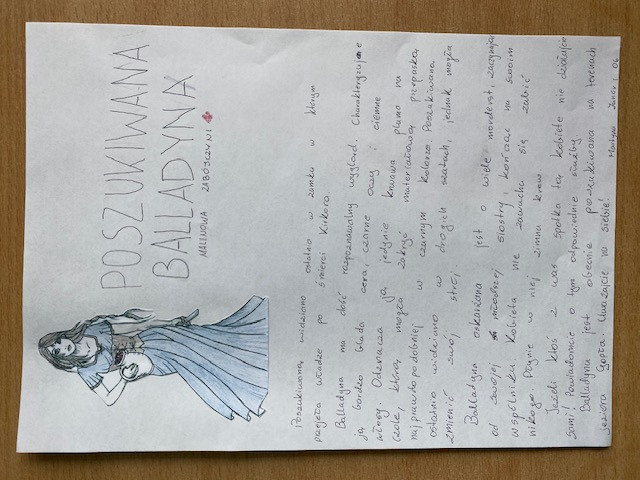 POSZUKIWANA
BALLADYNA
MALINOWA ZABÓJCZYNI
Poszukiwaną widziano ostatnio w zamku w którym
przejęła władzę po śmierci Kirkora.
Balladyna ma dość rozpoznawalny wygląd. Charakteryzuje
ją bardzo blada cera, czarne oczy i ciemne
włosy. Odznacza ją jedynie krwawa plama na
czole, którą mogła zakryć materiałową przepaską,
najprawdopodobniej w czarnym kolorze. Poszukiwaną
ostatnio widziano w drogich szatach, jednak mogła
zmienić swój strój.
Balladyna oskarżona jest o wiele morderst, zaczynając
od swojej młodszej siostry, kończąc na swoim
wspólniku. Kobieta nie zawacha się zabić
nikogo. Płynie w niej zimna krew.
Jeżeli ktoś z was spotka tą kobietę nie działajcie
sami! Powiadomcie o tym odpowiednie służby.
Balladyna jest obecnie poszukiwana na terenach
jeziora Gopła. Uważajcie na siebie!
Martyna